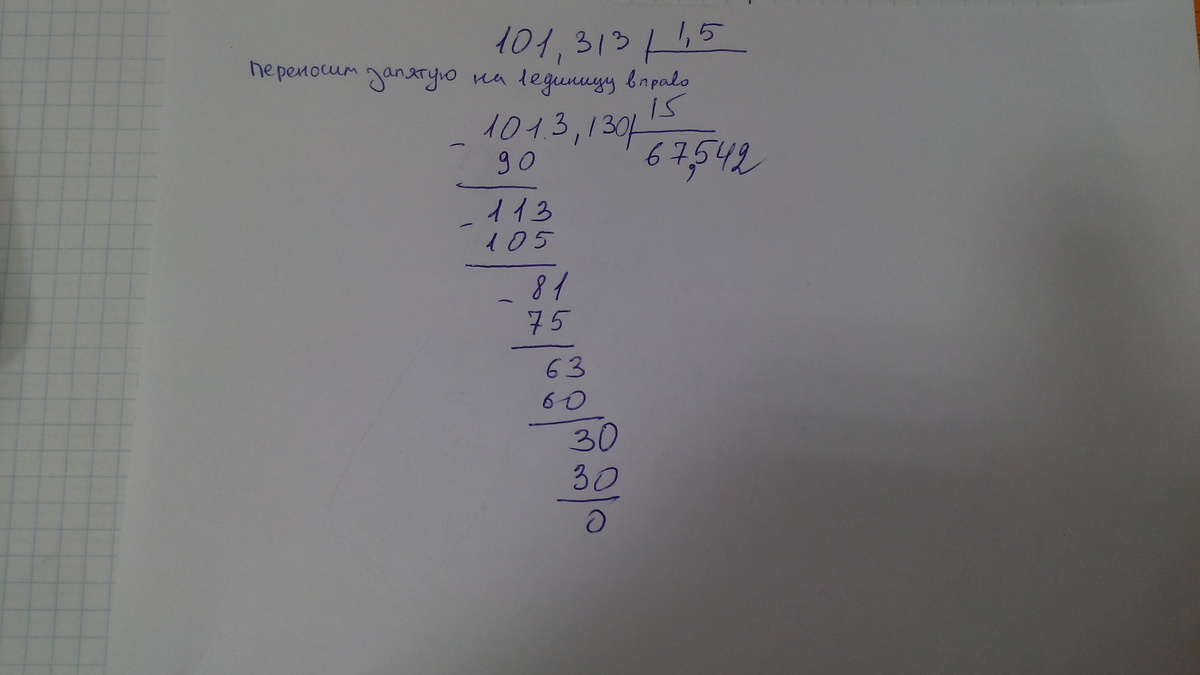 101,313 1,5
Переносим запятую на 1 единицу вправо
15
- 1013,130
67,542
90
- 113
105
- 81
75
63
60
30
30
0